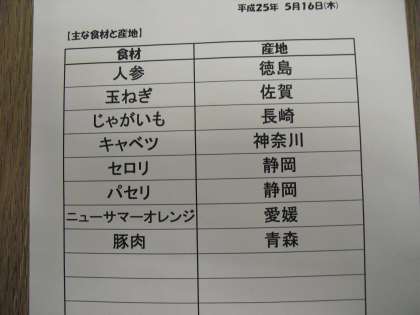 平成25年 5月16日(木)
【主な食材と産地】
食材 産地
人参 徳島
玉ねぎ 佐賀
じゃがいも 長崎
キャベツ 神奈川
セロリ 静岡
パセリ 静岡
ニューサマーオレンジ 愛媛
豚肉 青森